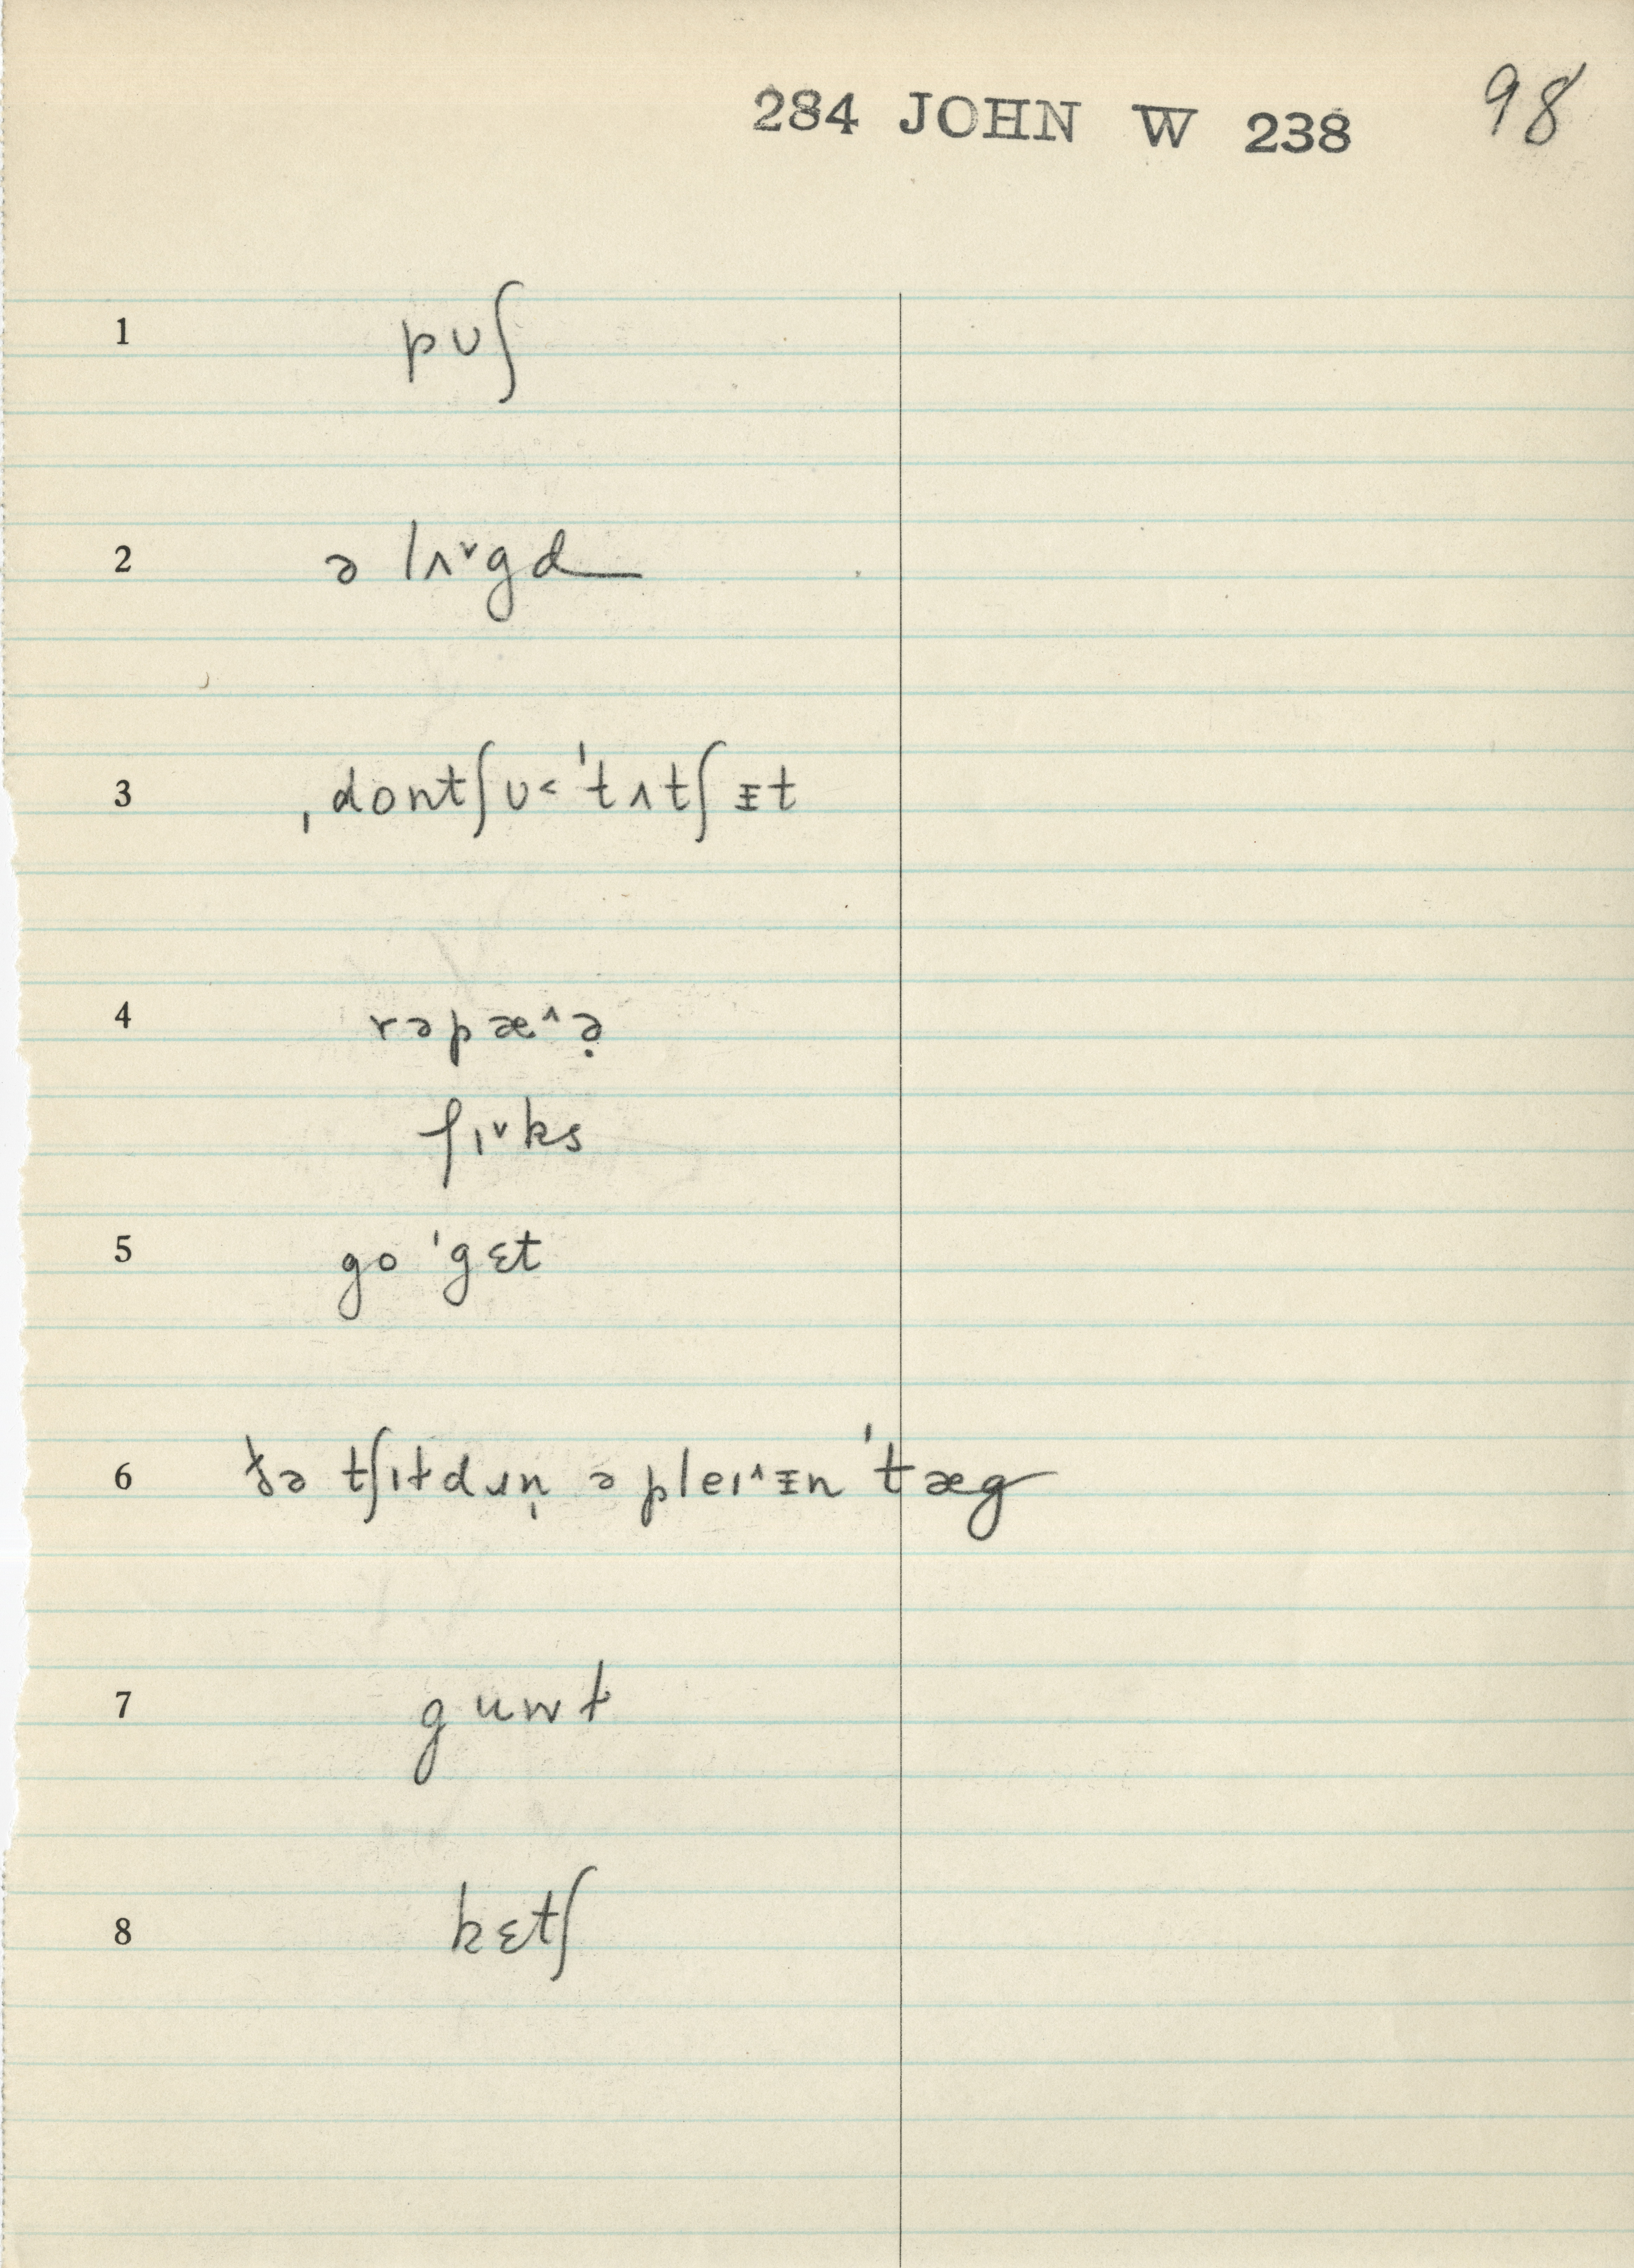 284 JOHN W 238 98
1 pʊʃ
2 ə lʌ˅gd
3 ˌdontʃʊ˂ ˈtʌtʃᵻt
4 rəpæ˄ə̣
fɪ˅ks
5 go ˈgɛt
6 ðə tʃɪɫdɹn̩ ə pleɪ˄ᵻn ˈtæg
7 guwɫ
8 kɛtʃ